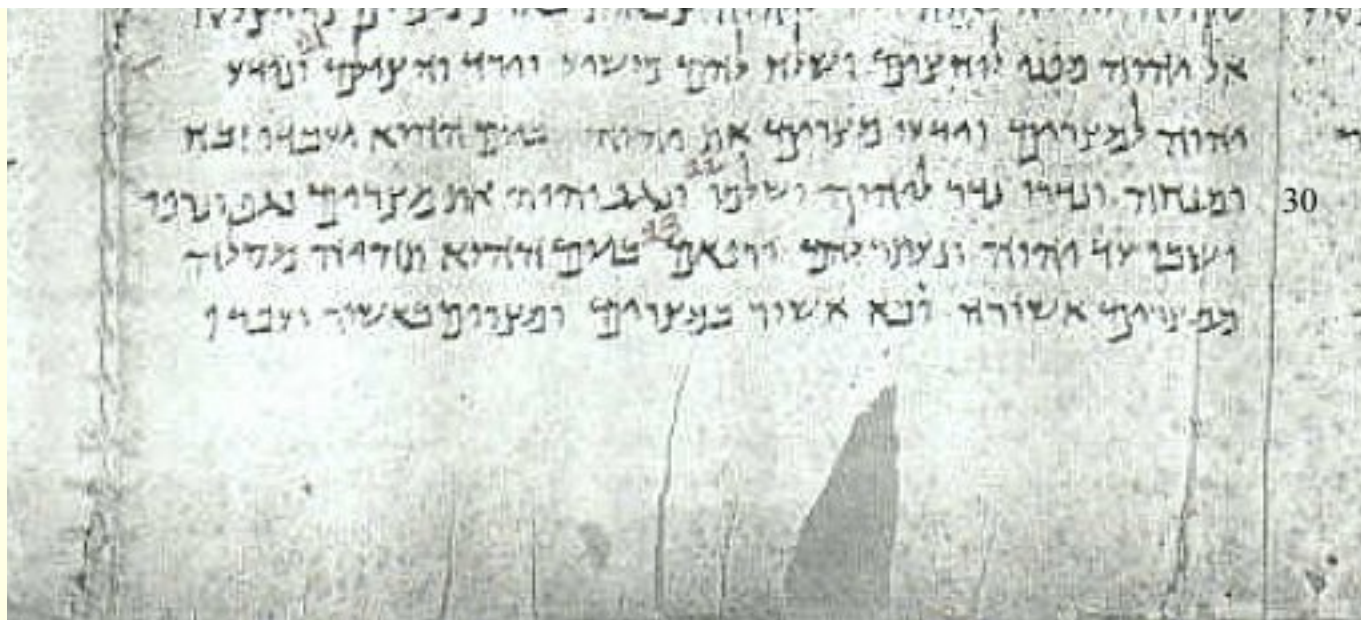 אל יהוה מפני לוחצים ושלח להם מושיע וירד והצילם 21 ונודע
יהוה למצרים וידעו מצרים את יהוה ביום ההוא ועבדו זבח
30 ומנחה ונדרו נדר ליהוה ושלמו 22 ונגף יהוה את מצרים נגוף ונרפו
ושבו עד יהוה ונעתר להם ורפאם 23 ביום ההוא תהיה מסלה
ממצרים אשורה ובא אשור במצרים ומצרים באשור ועבדו